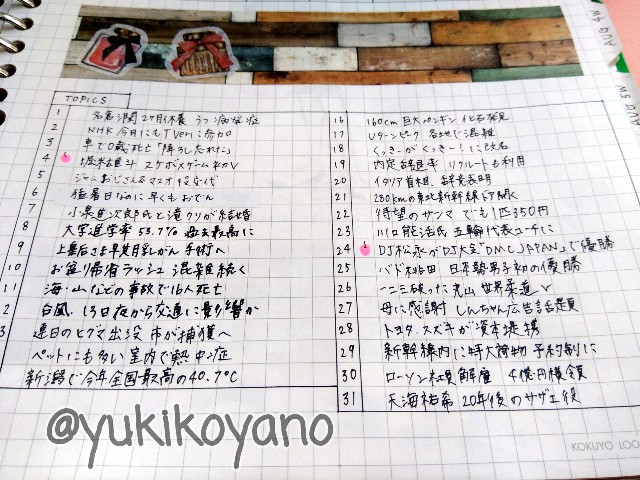 AUG 4W
AUG 5W
TOPICS
1 名倉潤 2ヶ月休養 うつ病発症
2 NHK 今月にもTVerに参加
3 車で0歳死亡「降ろし忘れた」
4 堀米雄斗 スケボXゲーム初V
5 ジャムおじさん&マスオ役交代
6 猛暑日なのに早くもおでん
7 小泉進次郎氏と滝クリが結婚
8 大学進学率53.7% 過去最高に
9 上皇后さま早期乳がん 手術へ
10 お盆帰省ラッシュ 混雑続く
11 海・山などの事故で16人死亡
2 台風、13日夜から交通に影響か
3 連日のヒグマ出没 市が捕獲へ
ペットにも多い室内で熱中症
新潟で今年全国最高の40.7℃
16 160cm 巨大ペンギン 化石発見
17 Uターンピーク 各地で混雑
18 くっきーがくっきー!に改名
19 内定辞退率 リクルートも利用
20 イタリア首相、辞意表明
21 280kmの東北新幹線ドア開く
22 待望のサンマ でも1匹350円
23 川口能活氏 五輪代表コーチに
24 DJ松永がDJ大会"DMC JAPAN"で優勝
25 バド桃田 日本勢男子初の優勝
26 一二三破った丸山 世界柔道V
27 母に感謝 しんちゃん広告話題
28 トヨタ、スズキが資本提携
29 新幹線内に特大荷物 予約制に
30 ローソン社員解雇 4億円横領
31 天海祐希 20年後のサザエ役
@yukikoyano
KOKUYO LOO